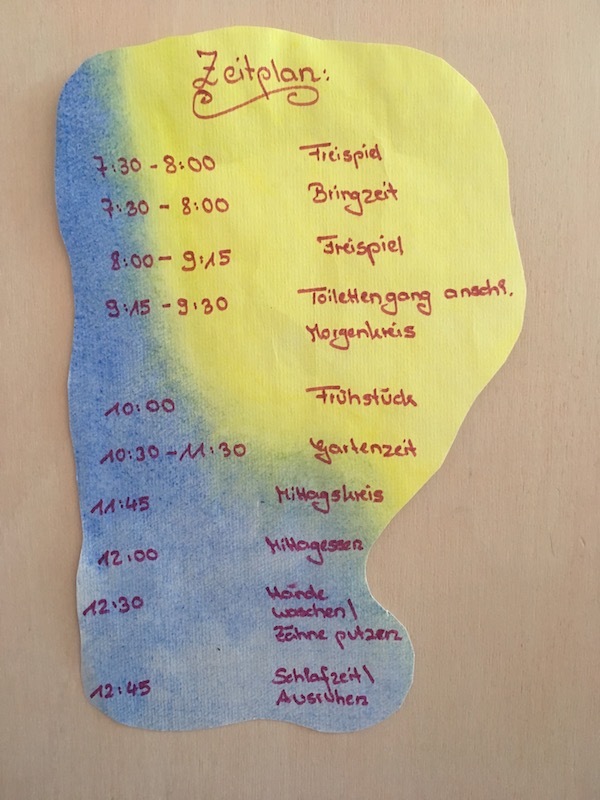 Zeitplan:
7:30 - 8:00 Freispiel
7:30 - 8:00 Bringzeit
8:00 - 9:15 Freispiel
9:15 - 9:30 Toilettengang anschl.
Morgenkreis
10:00 Frühstück
10:30 - 11:30 Gartenzeit
11:45 Mittagskreis
12:00 Mittagessen
12:30 Hände
waschen/
Zähne putzen
12:45 Schlafzeit/
Ausruhen